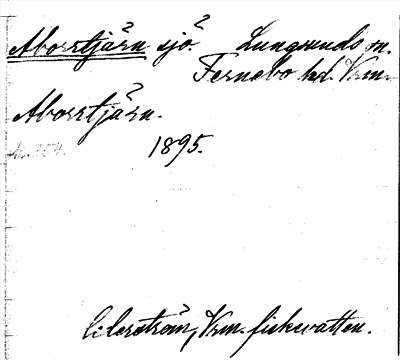 Aborrtjärn sjö Lungsunds sn.
Fernebo hd. Vrm.
Aborrtjärn.
1895.
Cederström, Vrm. fiskevatten.